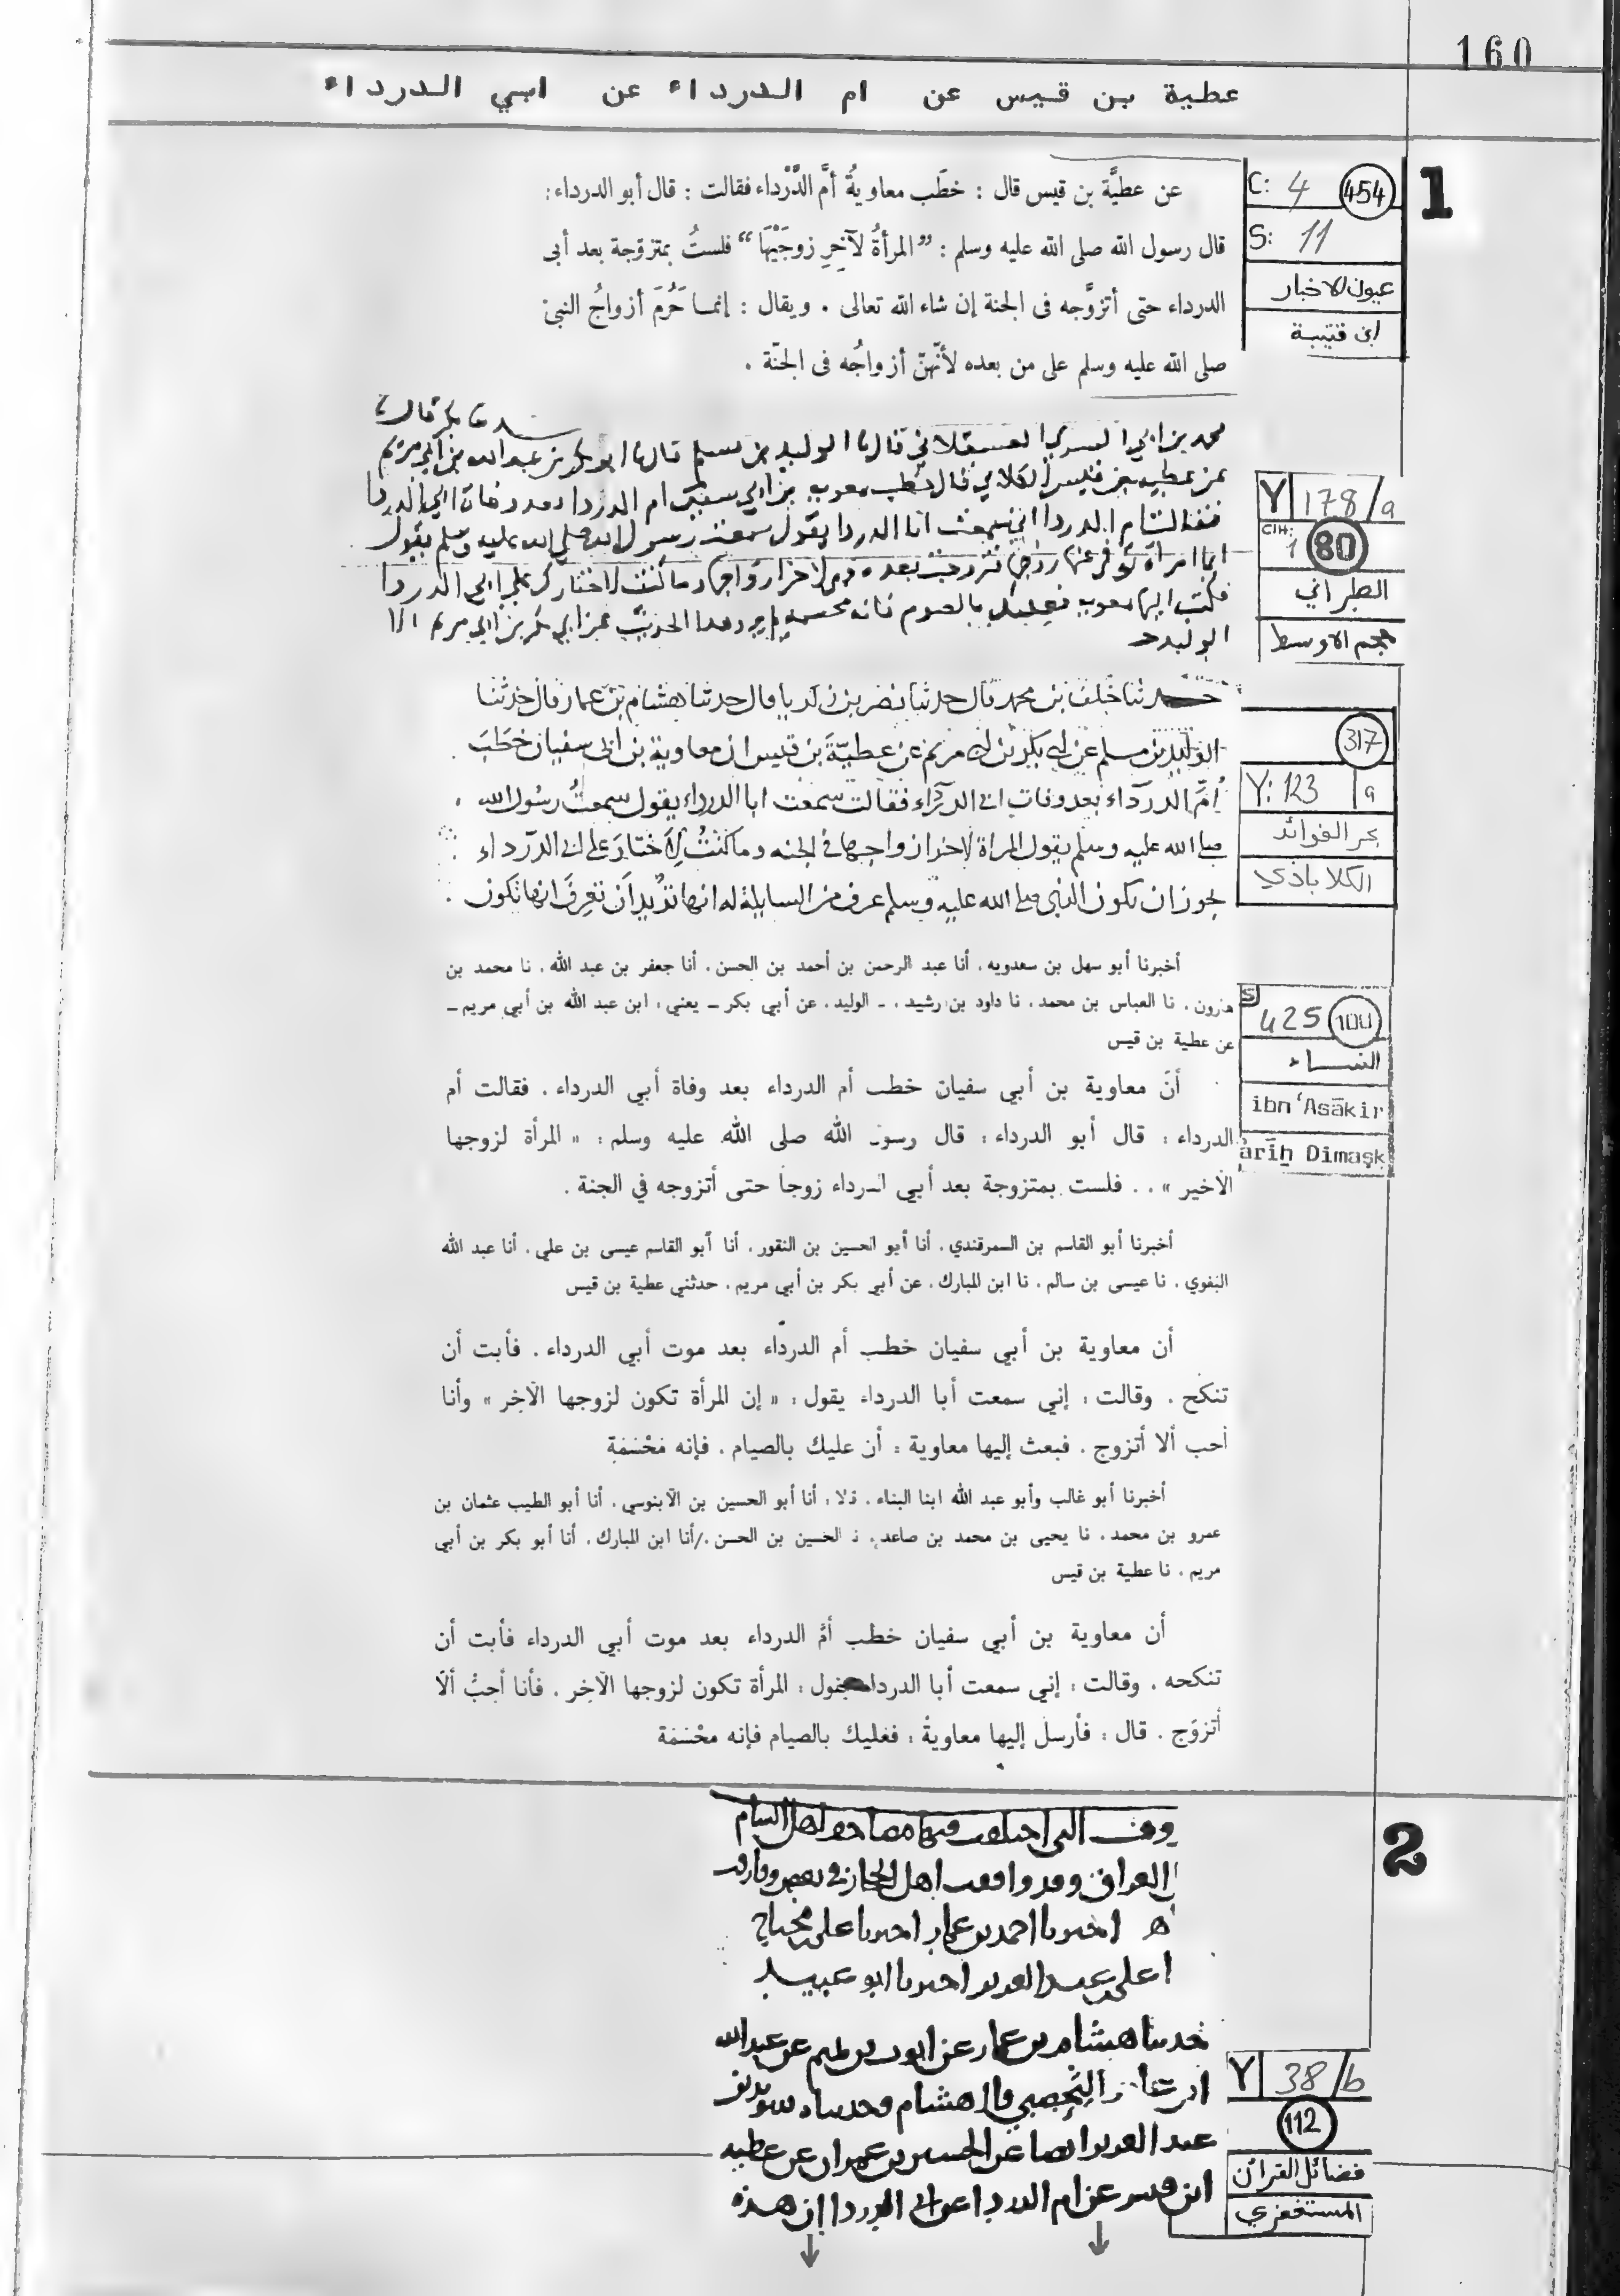 160
عطية بن قيس عن ام الدرداء عن ابي الدرداء
1
C: 4 454
S: 11
عيون الاخبار
ابن قتيبة
عن عطيَّة بن قيس قال : خطَب معاويةُ أمَّ الدَّرْداء فقالت : قال أبو الدرداء :
قال رسول الله صلى الله عليه وسلم : ”المرأةُ لآخِرِ زوجَيْهَا“ فلستُ بمتزوّجة بعد أبى
الدرداء حتى أتزوَّجه فى الجنة إن شاء الله تعالى . ويقال : إنمـا حَرُمَ أزواجُ النبىّ
صلى الله عليه وسلم على من بعده لأنّهنّ أزواجُه فى الجنّة .
Y 178/a
CIH: 1 80
الطبراني
معجم الاوسط
محمد بن ابي السري العسقلاني قال نا الوليد بن مسلم قال نا ابو بكر بن عبد الله بن ابي مريم
عن عطيه بن قيس الكلابي قال خطب معويه بن ابي سفين ام الدردا بعد وفاة ابي الدردا
فقالت ام الدردا اني سمعت ابا الدردا يقول سمعت رسول الله صلى الله عليه وسلم يقول
ايما امراة توفي عنها زوجها فتزوجت بعده فهي لاخر ازواجها وما كنت لاختارك على ابي الدردا
فكتب اليها معويه فعليك بالصوم فانه محسمه لم يرو هذا الحديث عن ابي بكر بن ابي مريم الا
الوليد
317
Y: 123 a
بحر الفوائد
الكلاباذي
حدثنا خلف بن محمد قال حدثنا نصر بن زكريا قال حدثنا هشام بن عمار قال حدثنا
الوليد بن مسلم عن ابي بكر بن ابي مريم عن عطيّة بن قيس ان معاوية بن ابي سفيان خَطَبَ
اُمّ الدرداء بعد وفات ابي الدرداء فقالت سمعت ابا الدرداء يقول سمعتُ رسُول الله
صلى الله عليه وسلم يقول المراة لاخر ازواجها في الجنه وما كنتُ لِاَختارَ على ابي الدرداء
يجوز ان يكون النبى صلى الله عليه وسلم عرف من السايلة له انها تريد اَن تعرِفَ انها تكون
S 425 100
النساء
ibn ʿAsākir
ariḫ Dimaşḳ
أخبرنا أبو سهل بن سعدويه ، أنا عبد الرحمن بن أحمد بن الحسن ، أنا جعفر بن عبد الله ، نا محمد بن
هارون ، نا العباس بن محمد ، نا داود بن رشيد ، ـ الوليد ، عن أبي بكر ــ يعني ، ابن عبد الله بن أبي مريم ــ
عن عطية بن قيس
أنّ معاوية بن أبي سفيان خطب أم الدرداء بعد وفاة أبي الدرداء . فقالت أم
الدرداء : قال أبو الدرداء : قال رسول الله صلى الله عليه وسلم : « المرأة لزوجها
الأخير » . . فلست بمتزوجة بعد أبي الدرداء زوجاً حتى أتزوجه في الجنة .
أخبرنا أبو القاسم بن السمرقندي ، أنا أبو الحسين بن النقور ، أنا أبو القاسم عيسى بن علي ، أنا عبد الله
البغوي ، نا عيسى بن سالم ، نا ابن المبارك ، عن أبي بكر بن أبي مريم ، حدثني عطية بن قيس
أن معاوية بن أبي سفيان خطب أم الدرداء بعد موت أبي الدرداء . فأبت أن
تنكح . وقالت : إني سمعت أبا الدرداء يقول : « إن المرأة تكون لزوجها الآخِر » وأنا
أحب ألا أتزوج . فبعث إليها معاوية : أن عليك بالصيام . فإنه مَحْسَمَة
أخبرنا أبو غالب وأبو عبد الله ابنا البناء . قالا : أنا أبو الحسين بن الآبنوسي ، أنا أبو الطيب عثمان بن
عمرو بن محمد ، نا يحيى بن محمد بن صاعد ، نا الحسين بن الحسن ، أنا ابن المبارك ، أنا أبو بكر بن أبي
مريم ، نا عطية بن قيس
أن معاوية بن أبي سفيان خطب أمّ الدرداء بعد موت أبي الدرداء فأبت أن
تنكحه . وقالت : إني سمعت أبا الدرداء يقول : المرأة تكون لزوجها الآخِر . فأنا أحِبُّ ألاّ
أتزوّج . قال : فأرسل إليها معاويةُ : فعليك بالصيام فإنه محْسَمَة
2
التى اختلفت فيها مصاحف اهل الشام
العراق وقد وافقت اهل الحجاز فى بعض وفارقت
اخبرنا احمد بن عمار اخبرنا على بن محتاج
على بن عبد العزيز اخبرنا ابو عبيد
حدثنا هشام بن عمار عن ايوب بن تميم عن عبد الله
اليحصبي قال هشام وحدثناه سويد بن
عبد العزيز ايضا عن الحسن بن عمران عن عطيه
ابن قيس عن ام الدردا عن ابى الدردا ان هذه
Y 38/b
112
فضائل القران
المستغفري